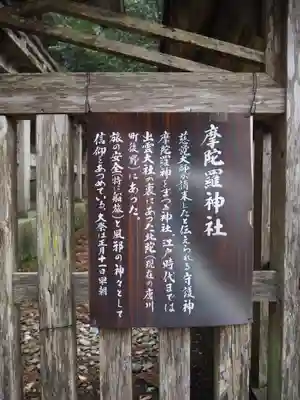 摩陀羅神社
慈覚大師の請来したと伝えられる守護神
摩陀羅神をまつる神社、江戸時代までは
出雲大社の東にあった北院(現在の唐川
町後野)にあった。
旅の安全(特に船旅)と風邪の神々として
信仰をあつめている。大祭は正月十一日早朝